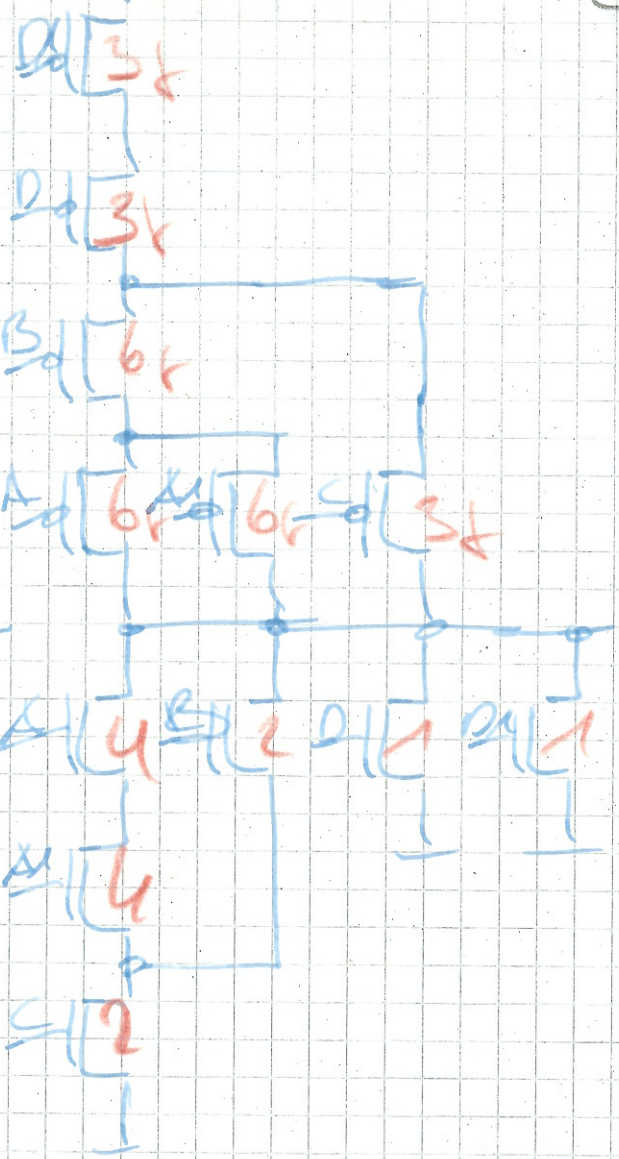 D1 3r
D 3r
B 6r
A 6r A1 6r C 3r
A 4 B 2 D 1 D1 1
A1 4
C 2